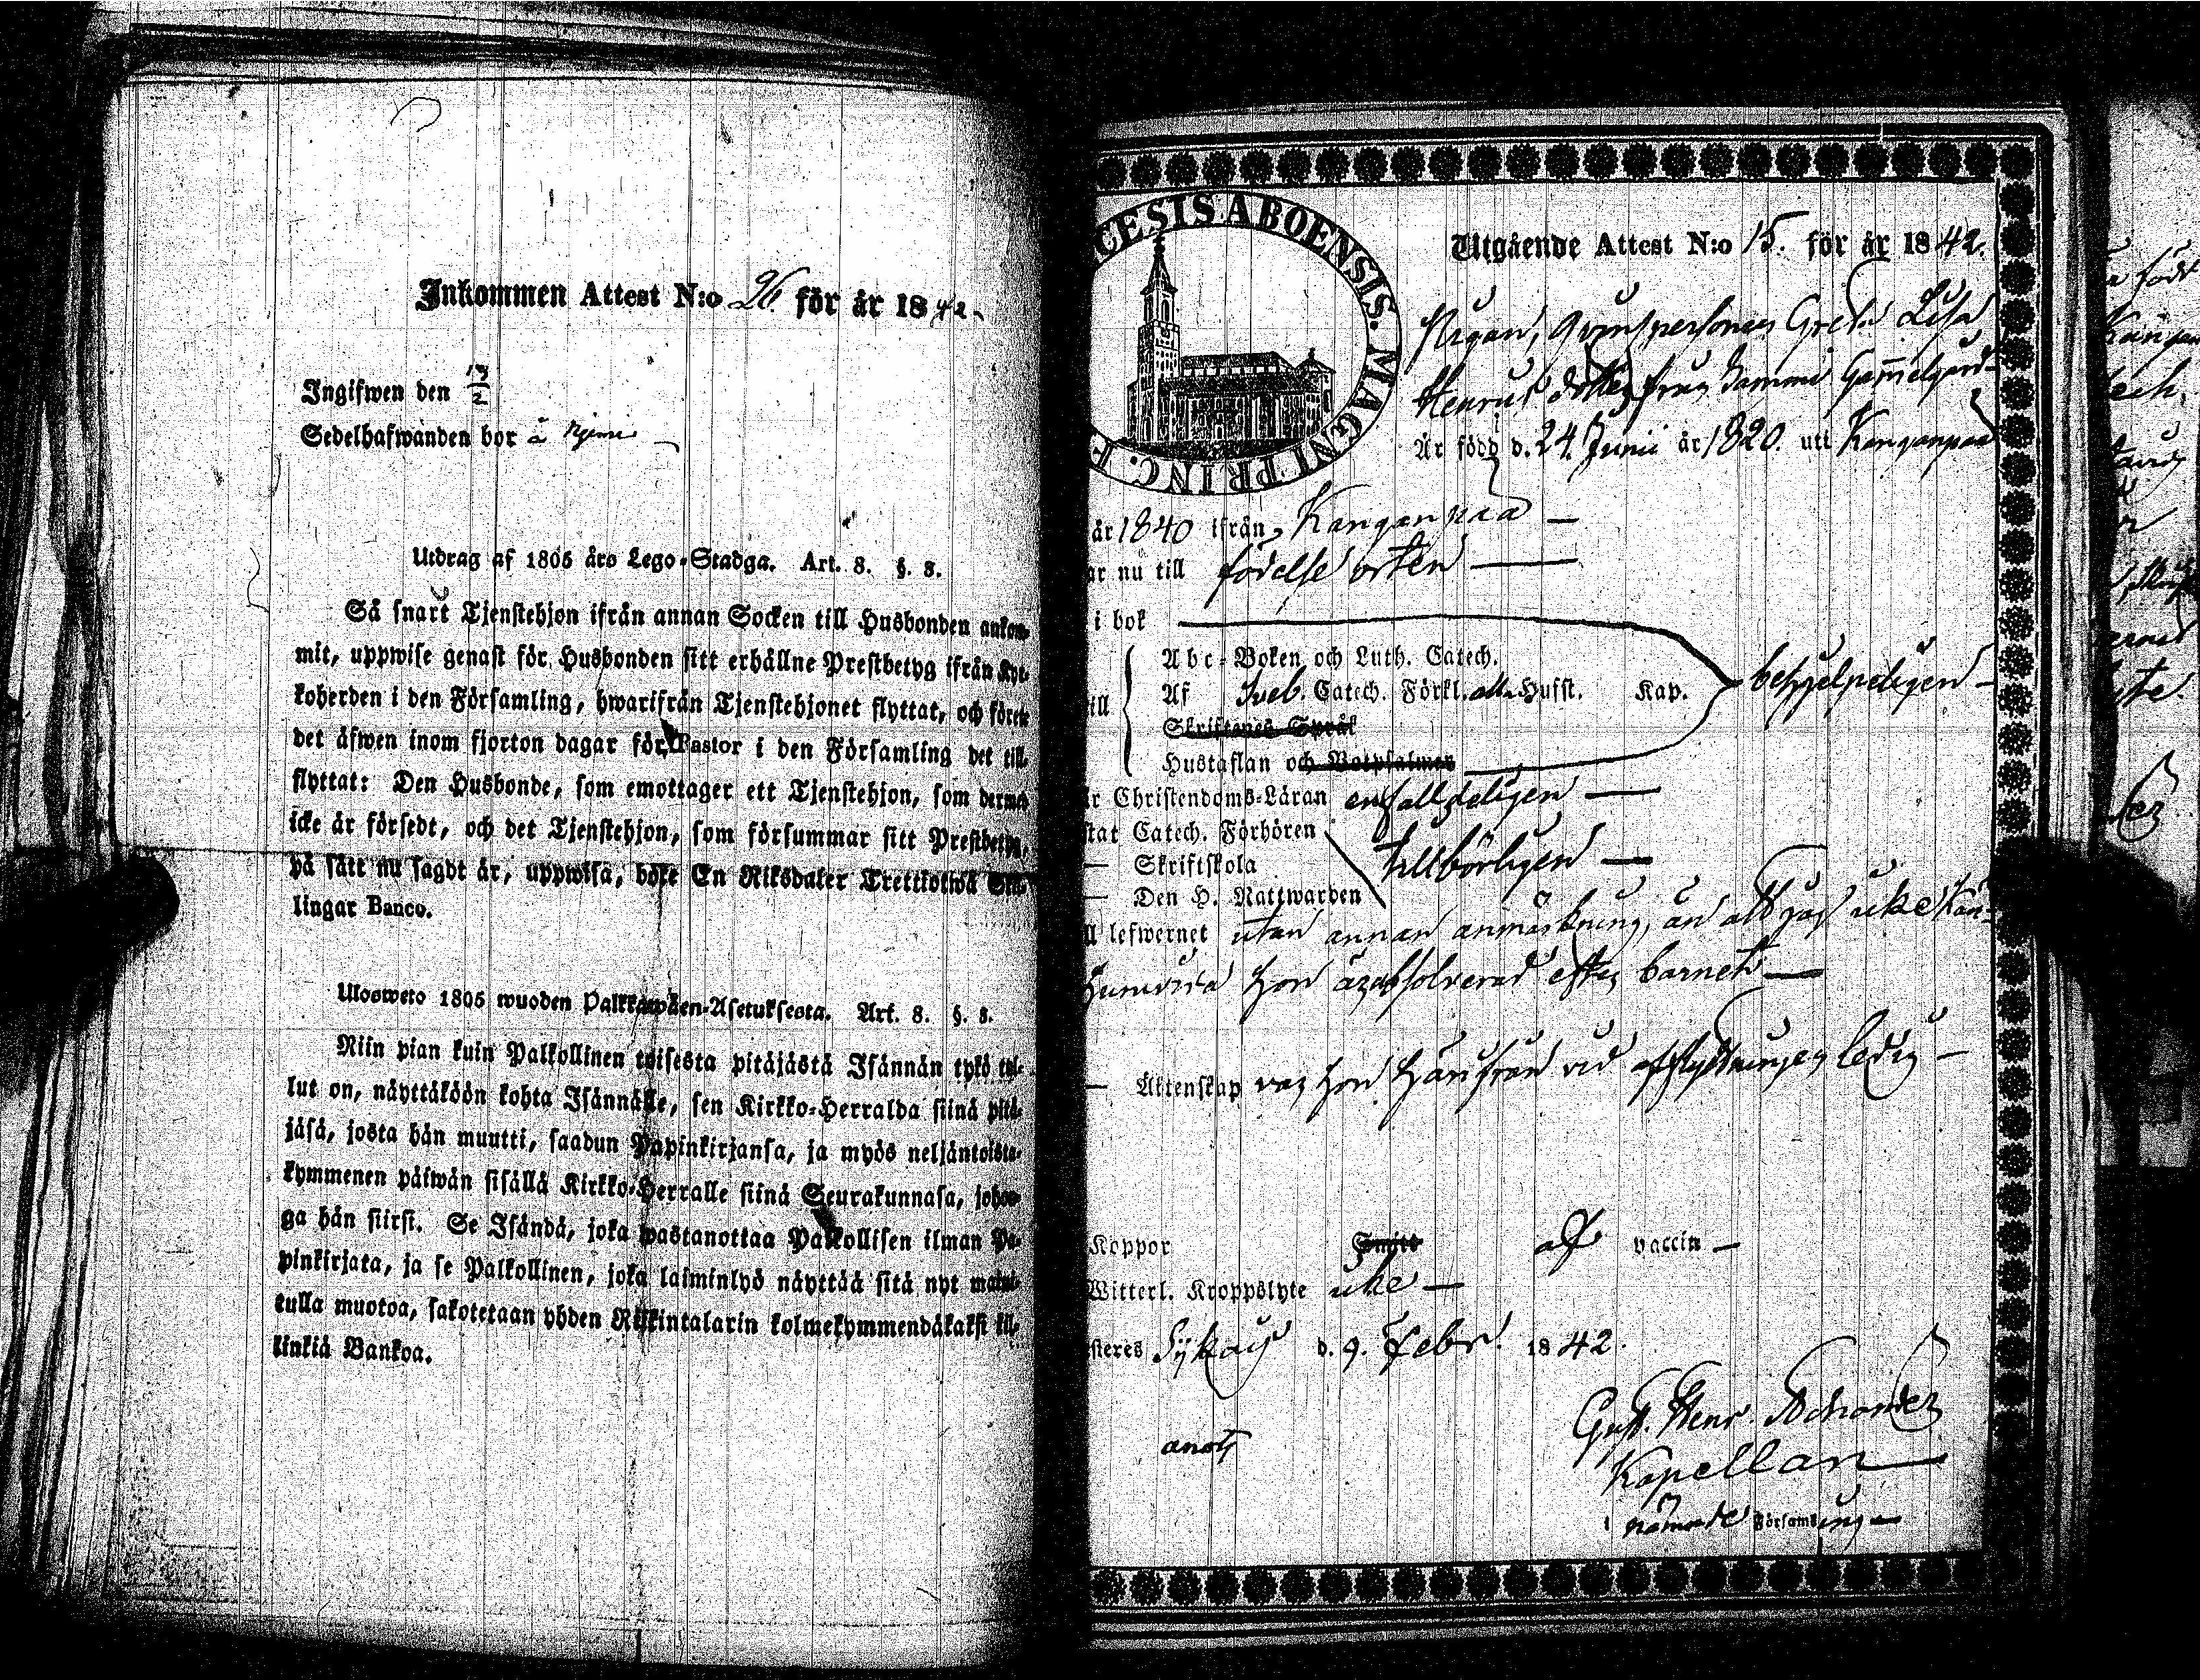 Inkommen Attest N:o 26. för år 1842.
Ingifwen den 13/2
Sedelhafwanden bor å
Utdrag af 1805 års Lego-Stadga. Art. 8. §. 8.
Så snart Tjenstehjon ifrån annan Socken till Husbonden ankom-
mit, uppwise genast för Husbonden sitt erhållne Prestbetyg ifrån Kyr-
koherden i den Församling, hwarifrån Tjenstehjonet flyttat, och förete
det äfwen inom fjorton dagar för Pastor i den Församling det till-
flyttat: Den Husbonde, som emottager ett Tjenstehjon, som dermed
icke är försedt, och det Tjenstehjon, som försummar sitt Prestbetyg,
på sätt nu sagdt är, uppwisa, böte En Riksdaler Trettiotwå Skil-
lingar Banco.
Ulosweto 1805 wuoden Palkkawäen-Asetuksesta. Art. 8. §. 8.
Niin pian kuin Palkollinen toisesta pitäjästä Isännän tykö tul-
lut on, näyttäköön kohta Isännälle, sen Kirkko-Herralda siinä pitä-
jäsä, josta hän muutti, saadun Papinkirjansa, ja myös neljäntoista-
kymmenen päiwän sisällä Kirkko-Herralle siinä Seurakunnasa, johon-
ga hän siirsi. Se Isändä, joka wastanottaa Palkollisen ilman Pa-
pinkirjata, ja se Palkollinen, joka laiminlyö näyttää sitä nyt maini-
tulla muotoa, sakotetaan yhden Riikintalarin kolmekymmendäkaksi kil-
linkiä Bankoa.
CESIS ABOENSIS. MAGNI PRINC. F
Utgående Attest N:o 15. för år 1842.
Pigan, qvinspersonen Greta Lisa
Henricsdotter från Sammi Gammelgård
Är född d. 24. Junii år 1820. uti Kanganpää
år 1840 ifrån Kanganpää
ar nu till födelse orten
i bok
Abc-Boken och Luth. Catech.
ill Af Sveb. Catech. Förkl. alla Hufst. Kap. behjelpeligen
Skriftenes Språk
Hustaflan och Botpsalmer
är Christendoms-Läran enfalldeligen
stat Catech. Förhören
Skriftskola tillbörligen
Den H. Nattwarden
ll lefwernet utan annan anmärkning, än att jag icke kän-
huruvida hon är absolverad efter barnet
Äktenskap var hon härifrån vid afflyttningen ledig
Koppor af vaccin
Witterl. Kroppslyte icke
steres d. 9. Febr. 1842.
Gust. Henr.
Kapellan
i nämnde Församling